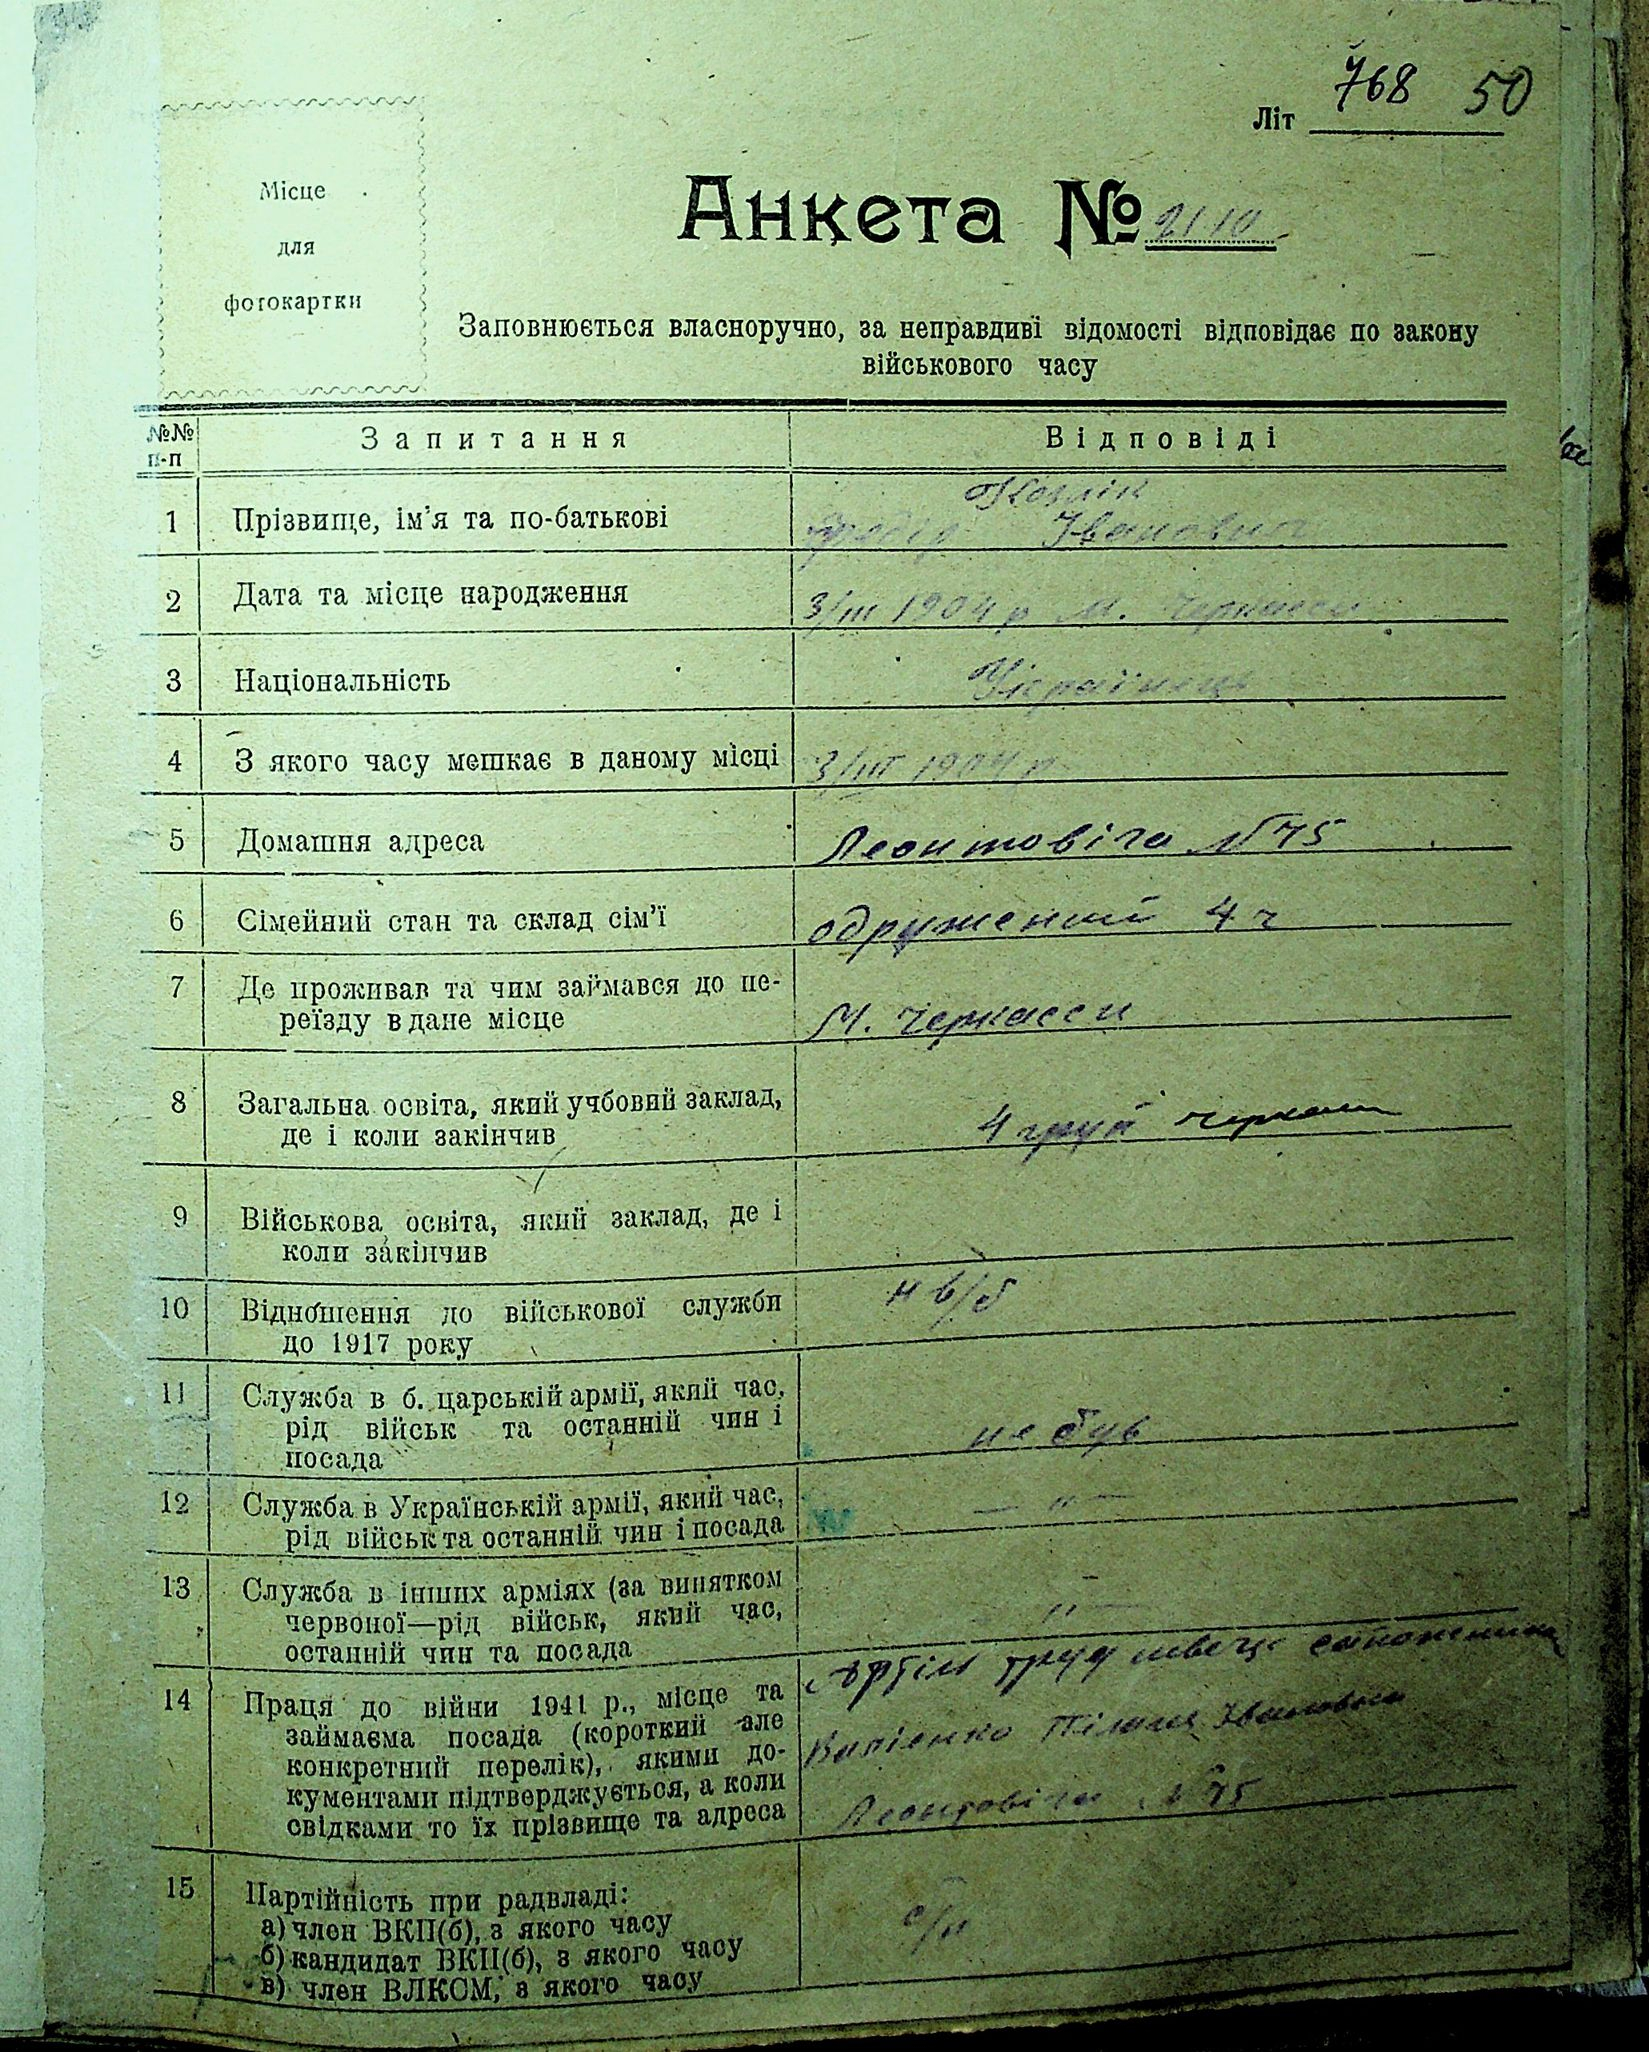 768 50
Літ
Місце
для
фотокартки
Анкета № 2110
Заповнюється власноручно, за неправдиві відомості відповідає по закону
військового часу
№№ п-п Запитання Відповіді
1 Прізвище, ім'я та по-батькові
Іванович
2 Дата та місце народження 3/III 1904 р М. Черкасси
3 Національність Українець
4 З якого часу мешкає в даному місці 3/III 1904 р
5 Домашня адреса Леонтовіча №75
6 Сімейний стан та склад сім'ї одружений 4 ч
7 Де проживав та чим займався до пе-
реїзду в дане місце М. Черкасси
8 Загальна освіта, який учбовий заклад,
де і коли закінчив 4 груп
9 Військова освіта, який заклад, де і
коли закінчив
10 Відношення до військової служби н в/б
до 1917 року
11 Служба в б. царській армії, який час,
рід військ та останній чин і не був
посада
12 Служба в Українській армії, який час, — " —
рід військ та останній чин і посада
13 Служба в інших арміях (за винятком
червоної—рід військ, який час, — " —
останній чин та посада
14 Праця до війни 1941 р., місце та Артіль труд швець
займаєма посада (короткий але Іванович
конкретний перелік), якими до-
кументами підтверджується, а коли Леонтовіча №75
свідками то їх прізвище та адреса
15 Партійність при радвладі:
а) член ВКП(б), з якого часу б/п
б) кандидат ВКП(б), з якого часу
в) член ВЛКСМ, з якого часу